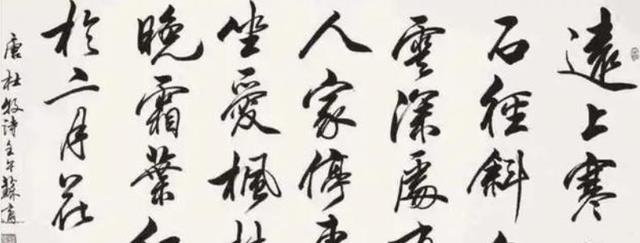 遠上寒
石徑斜
雲深處有
人家停車
坐愛楓林
晚霜葉紅
於二月花
唐杜牧詩壬午蘇